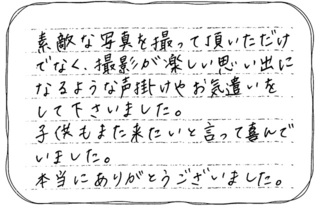 素敵な写真を撮って頂いただけ
でなく、撮影が楽しい思い出に
なるような声掛けやお気遣いを
して下さいました。
子供もまた来たいと言って喜んで
いました。
本当にありがとうございました。